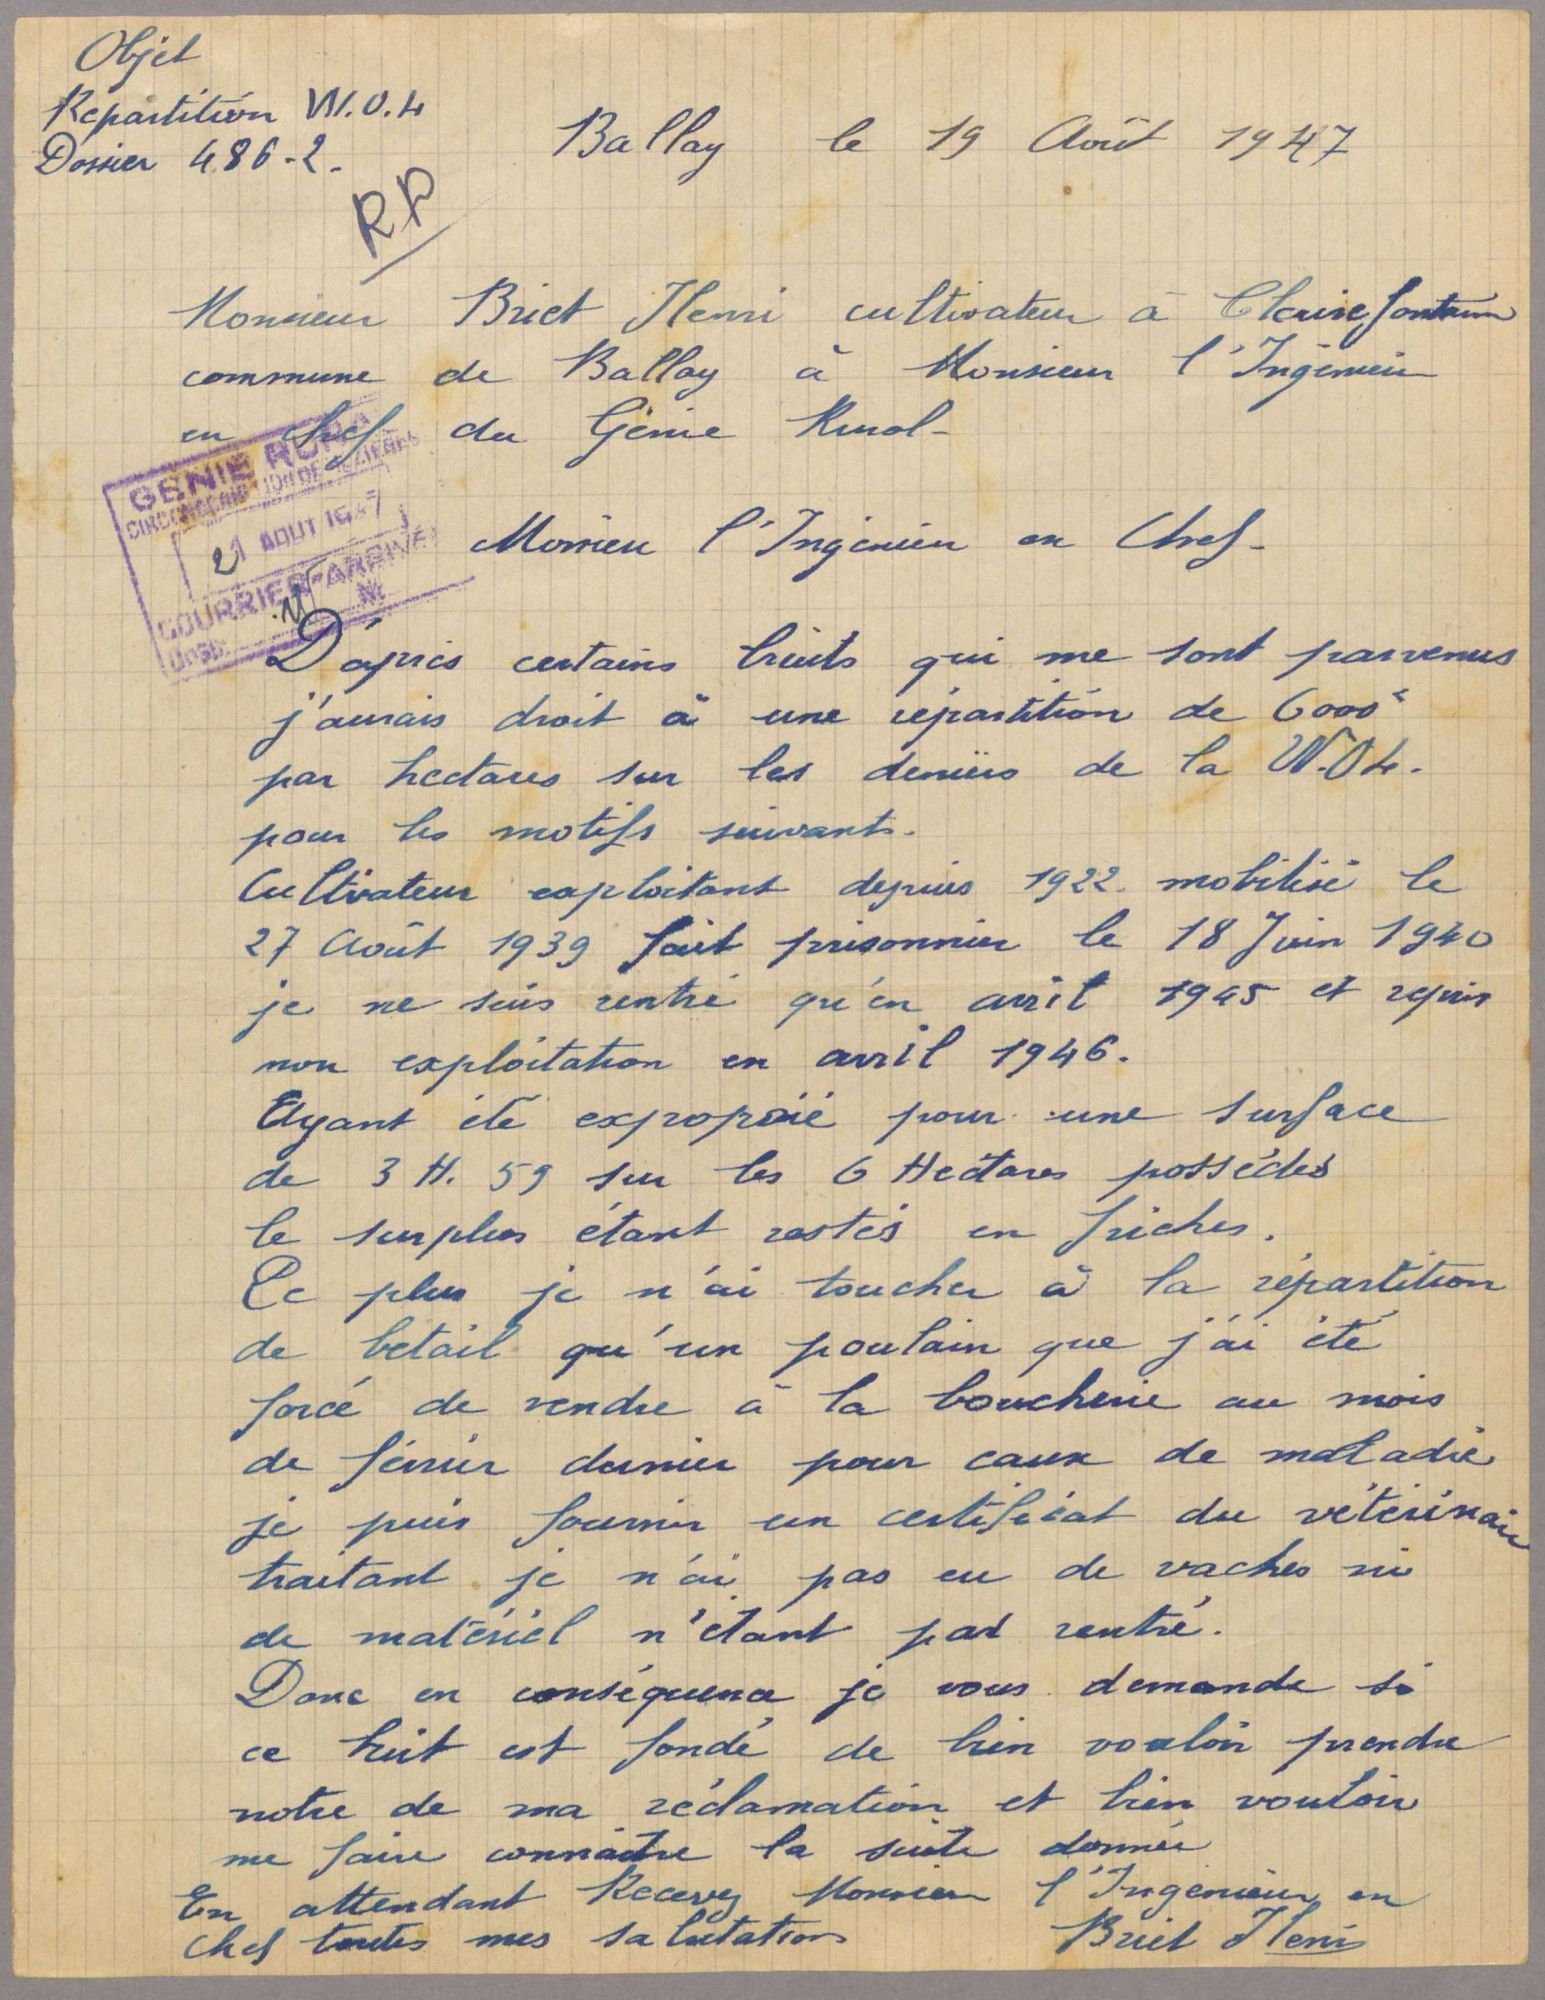 Objet
Répartition W.O.L
Dossier 486-2.
Ballay le 19 Août 1947
RP
Monsieur Briet Henri cultivateur à Clairefontaine
commune de Ballay à Monsieur l'Ingénieur
en chef du Génie Rural-
GÉNIE RURAL
CIRCONSCRIPTION DE MÉZIÈRES
21 AOUT 1947
COURRIER-ARRIVÉE
Monsieur l'Ingénieur en Chef-
D'après certains bruits qui me sont parvenus
j'aurais droit à une répartition de 6000f
par hectares sur les deniers de la W.O.L.
pour les motifs suivants.
Cultivateur exploitant depuis 1922 mobilisé le
27 Août 1939 fait prisonnier le 18 Juin 1940
je ne suis rentré qu'en avril 1945 et repris
mon exploitation en avril 1946.
Ayant été exproprié pour une surface
de 3 H. 59 sur les 6 Hectares possédés
le surplus étant restés en friches.
De plus je n'ai toucher à la répartition
de betail qu'un poulain que j'ai été
forcé de vendre à la boucherie au mois
de février dernier pour caux de maladie
je puis fournir un certificat du vétérinaire
traitant je n'ai pas eu de vaches ni
de matériel n'étant pas rentré.
Donc en conséquence je vous demande si
ce bruit est fondé de bien vouloir prendre
notre de ma réclamation et bien vouloir
me faire connaitre la suite donnée
En attendant Recevez Monsieur l'Ingénieur en
chef toutes mes salutations Briet Henri